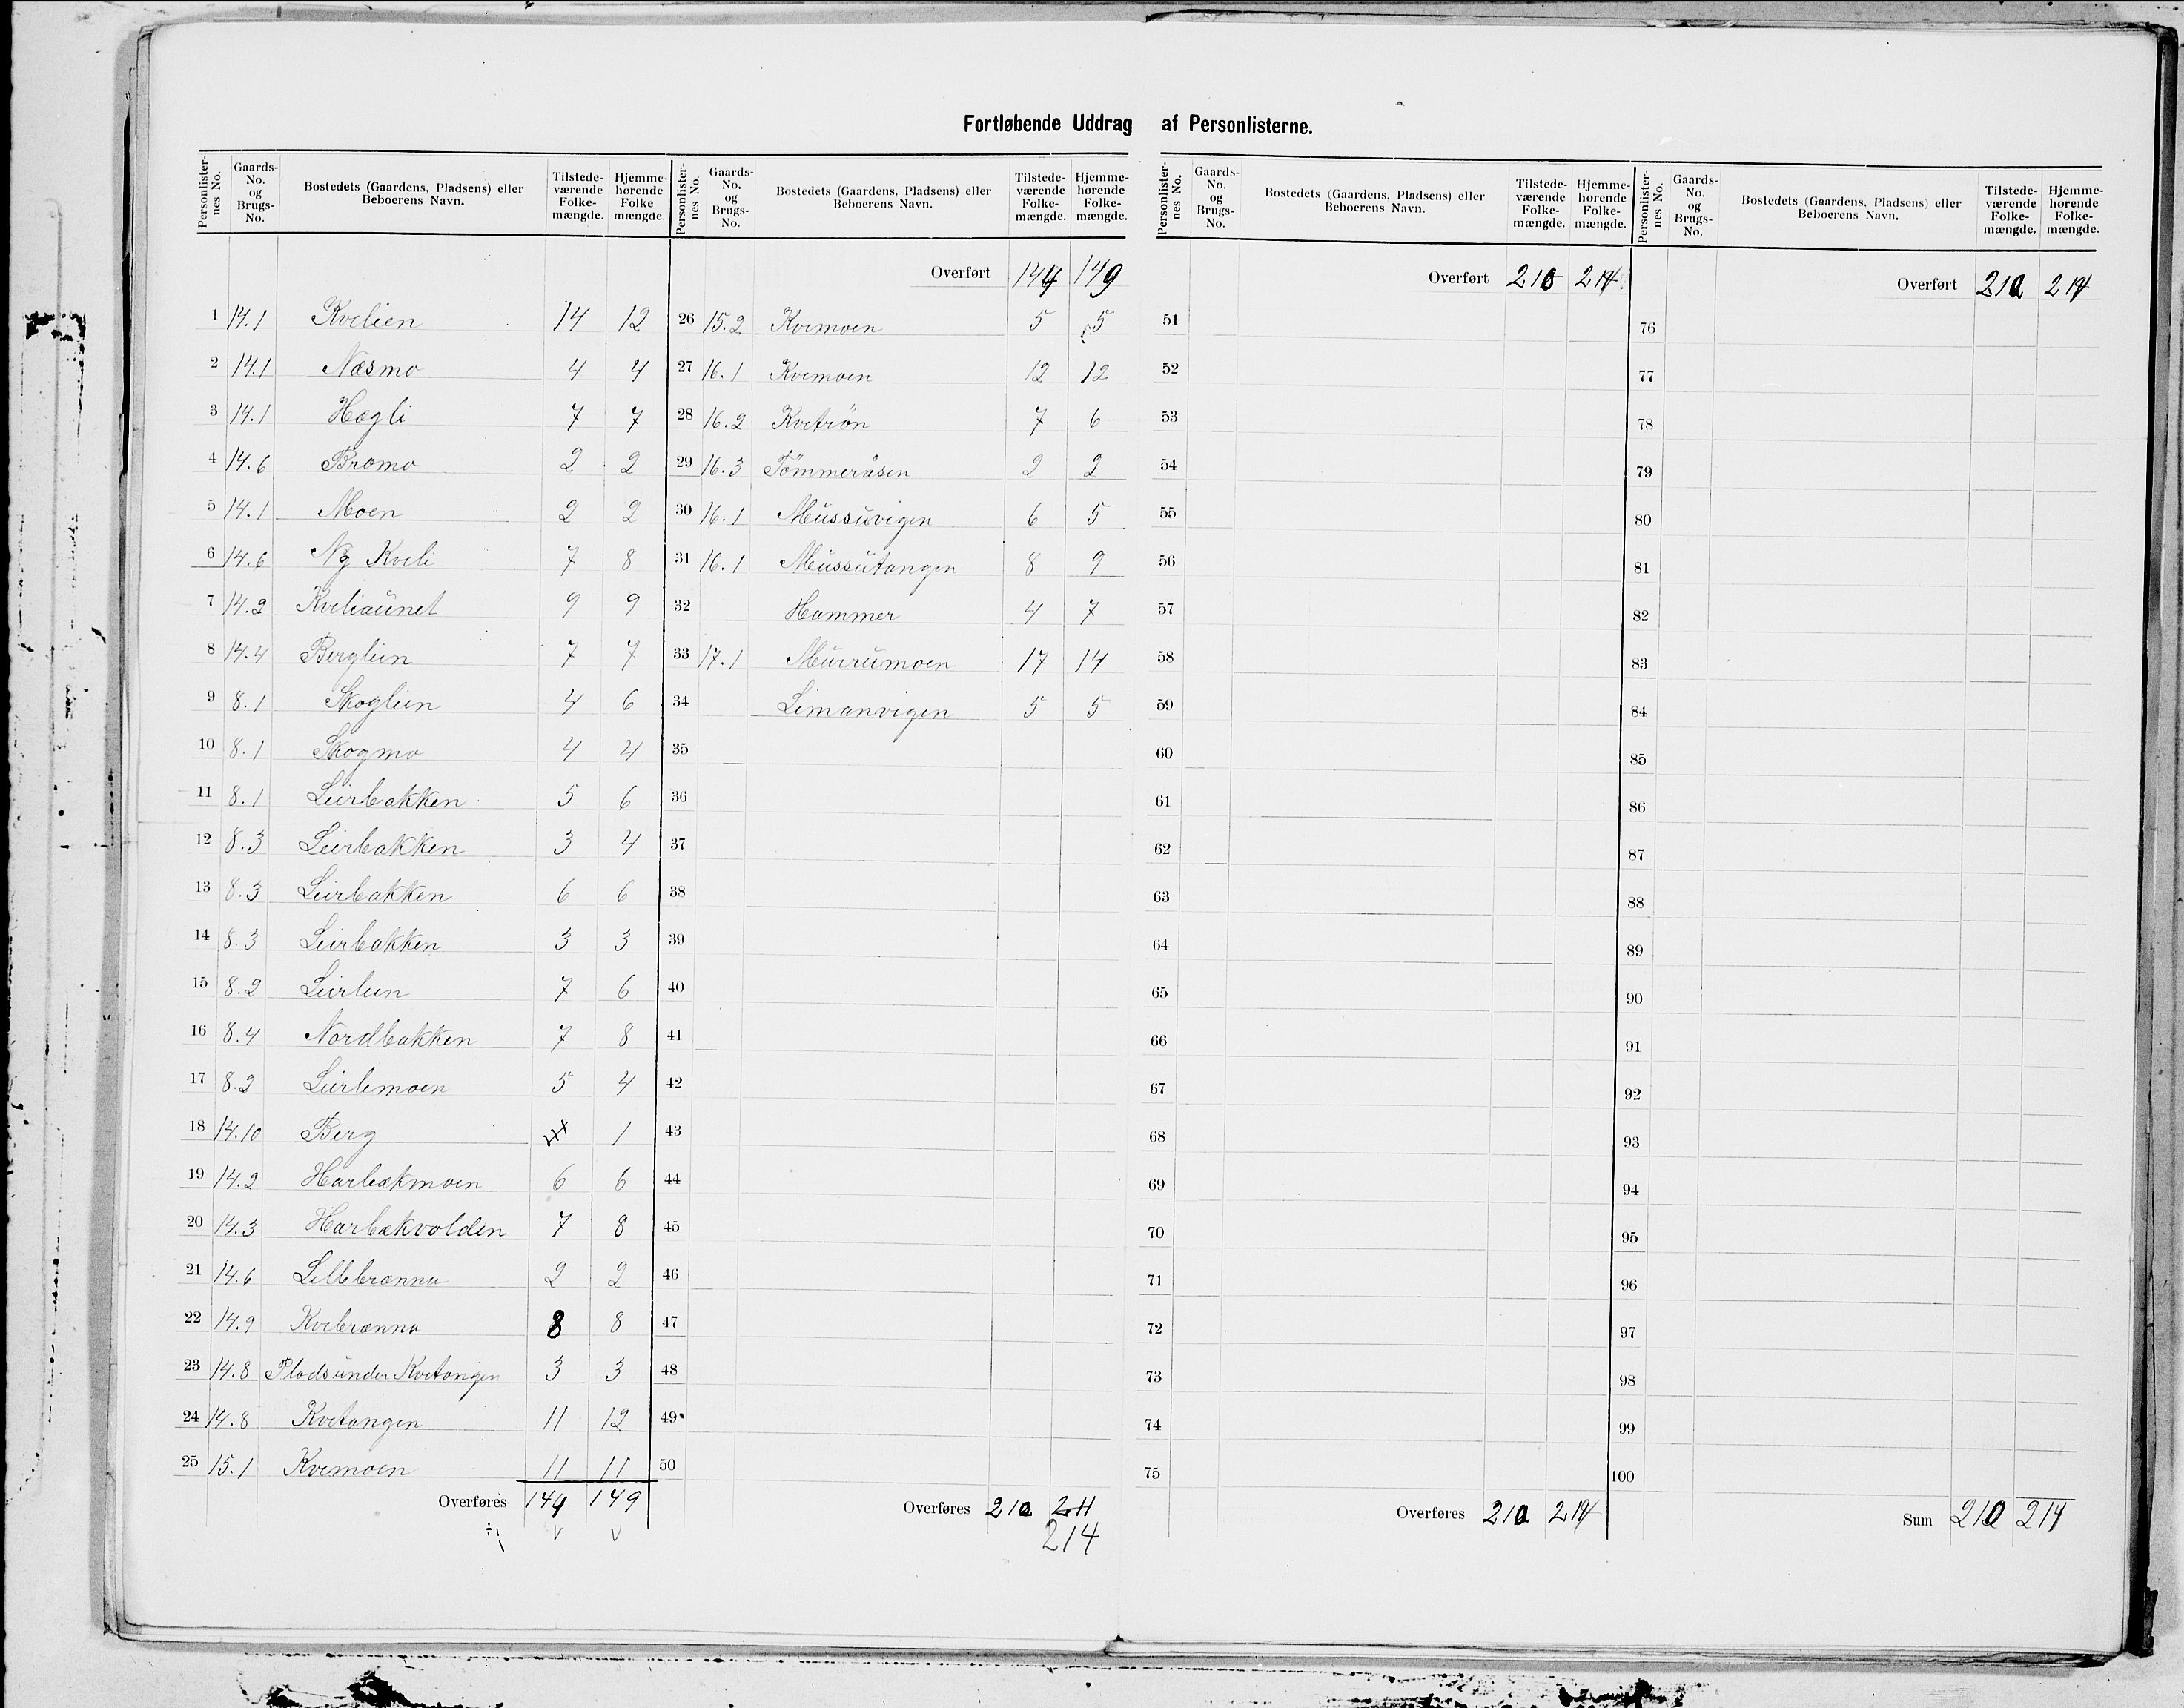 Fortløbende Uddrag af Personlisterne.
Personlister-nes No. Gaards-No. og Brugs-No. Bostedets (Gaardens, Pladsens) eller Beboerens Navn. Tilstede-værende Folke-mængde. Hjemme-hørende Folke mængde.
1 14.1 Kvelien 14 12
2 14.1 Næsmo 4 4
3 14.1 Hægli 7 7
4 14.6 Bromo 2 2
5 14.1 Moen 2 2
6 14.6 Kveli 7 8
7 14.2 Kveliaunet 9 9
8 14.4 Berglien 7 7
9 8.1 Skoglien 4 6
10 8.1 Skogmo 4 4
11 8.1 Leirbakken 5 6
12 8.3 Leirbakken 3 4
13 8.3 Leirbakken 6 6
14 8.3 Leirbakken 3 3
15 8.2 Leirlien 7 6
16 8.4 Nordbakken 7 8
17 8.2 Leirlimoen 5 4
18 14.10 Berg 1
19 14.2 Harbækmoen 6 6
20 14.3 Harbækvolden 7 8
21 14.6 Lillebrænna 2 2
22 14.9 Kvebrænna 8 8
23 14.8 Plads under Kvetangen 3 3
24 14.8 Kvetangen 11 12
25 15.1 Kvemoen 11 11
Overføres 144 149
÷1 v v
Personlister-nes No. Gaards-No. og Brugs-No. Bostedets (Gaardens, Pladsens) eller Beboerens Navn. Tilstede-værende Folke-mængde. Hjemme-hørende Folke-mængde.
Overført 144 149
26 15.2 Kvemoen 5 5
27 16.1 Kvemoen 12 12
28 16.2 Kvetrön 7 6
29 16.3 Tömmeråsen 2 2
30 16.1 Mussuvigen 6 5
31 16.1 Mussutangen 8 9
32 Hammer 4 7
33 17.1 Murrumoen 17 14
34 Limanvigen 5 5
35
36
37
38
39
40
41
42
43
44
45
46
47
48
49
50
Overføres 210 211
214
Personlister-nes No. Gaards-No. og Brugs-No. Bostedets (Gaardens, Pladsens) eller Beboerens Navn. Tilstede-værende Folke-mængde. Hjemme-hørende Folke-mængde.
Overført 210 214
51
52
53
54
55
56
57
58
59
60
61
62
63
64
65
66
67
68
69
70
71
72
73
74
75
Overføres 210 214
Personlister-nes No. Gaards-No. og Brugs-No. Bostedets (Gaardens, Pladsens) eller Beboerens Navn. Tilstede-værende Folke-mængde. Hjemme-hørende Folke-mængde.
Overført 210 214
76
77
78
79
80
81
82
83
84
85
86
87
88
89
90
91
92
93
94
95
96
97
98
99
100
Sum 210 214